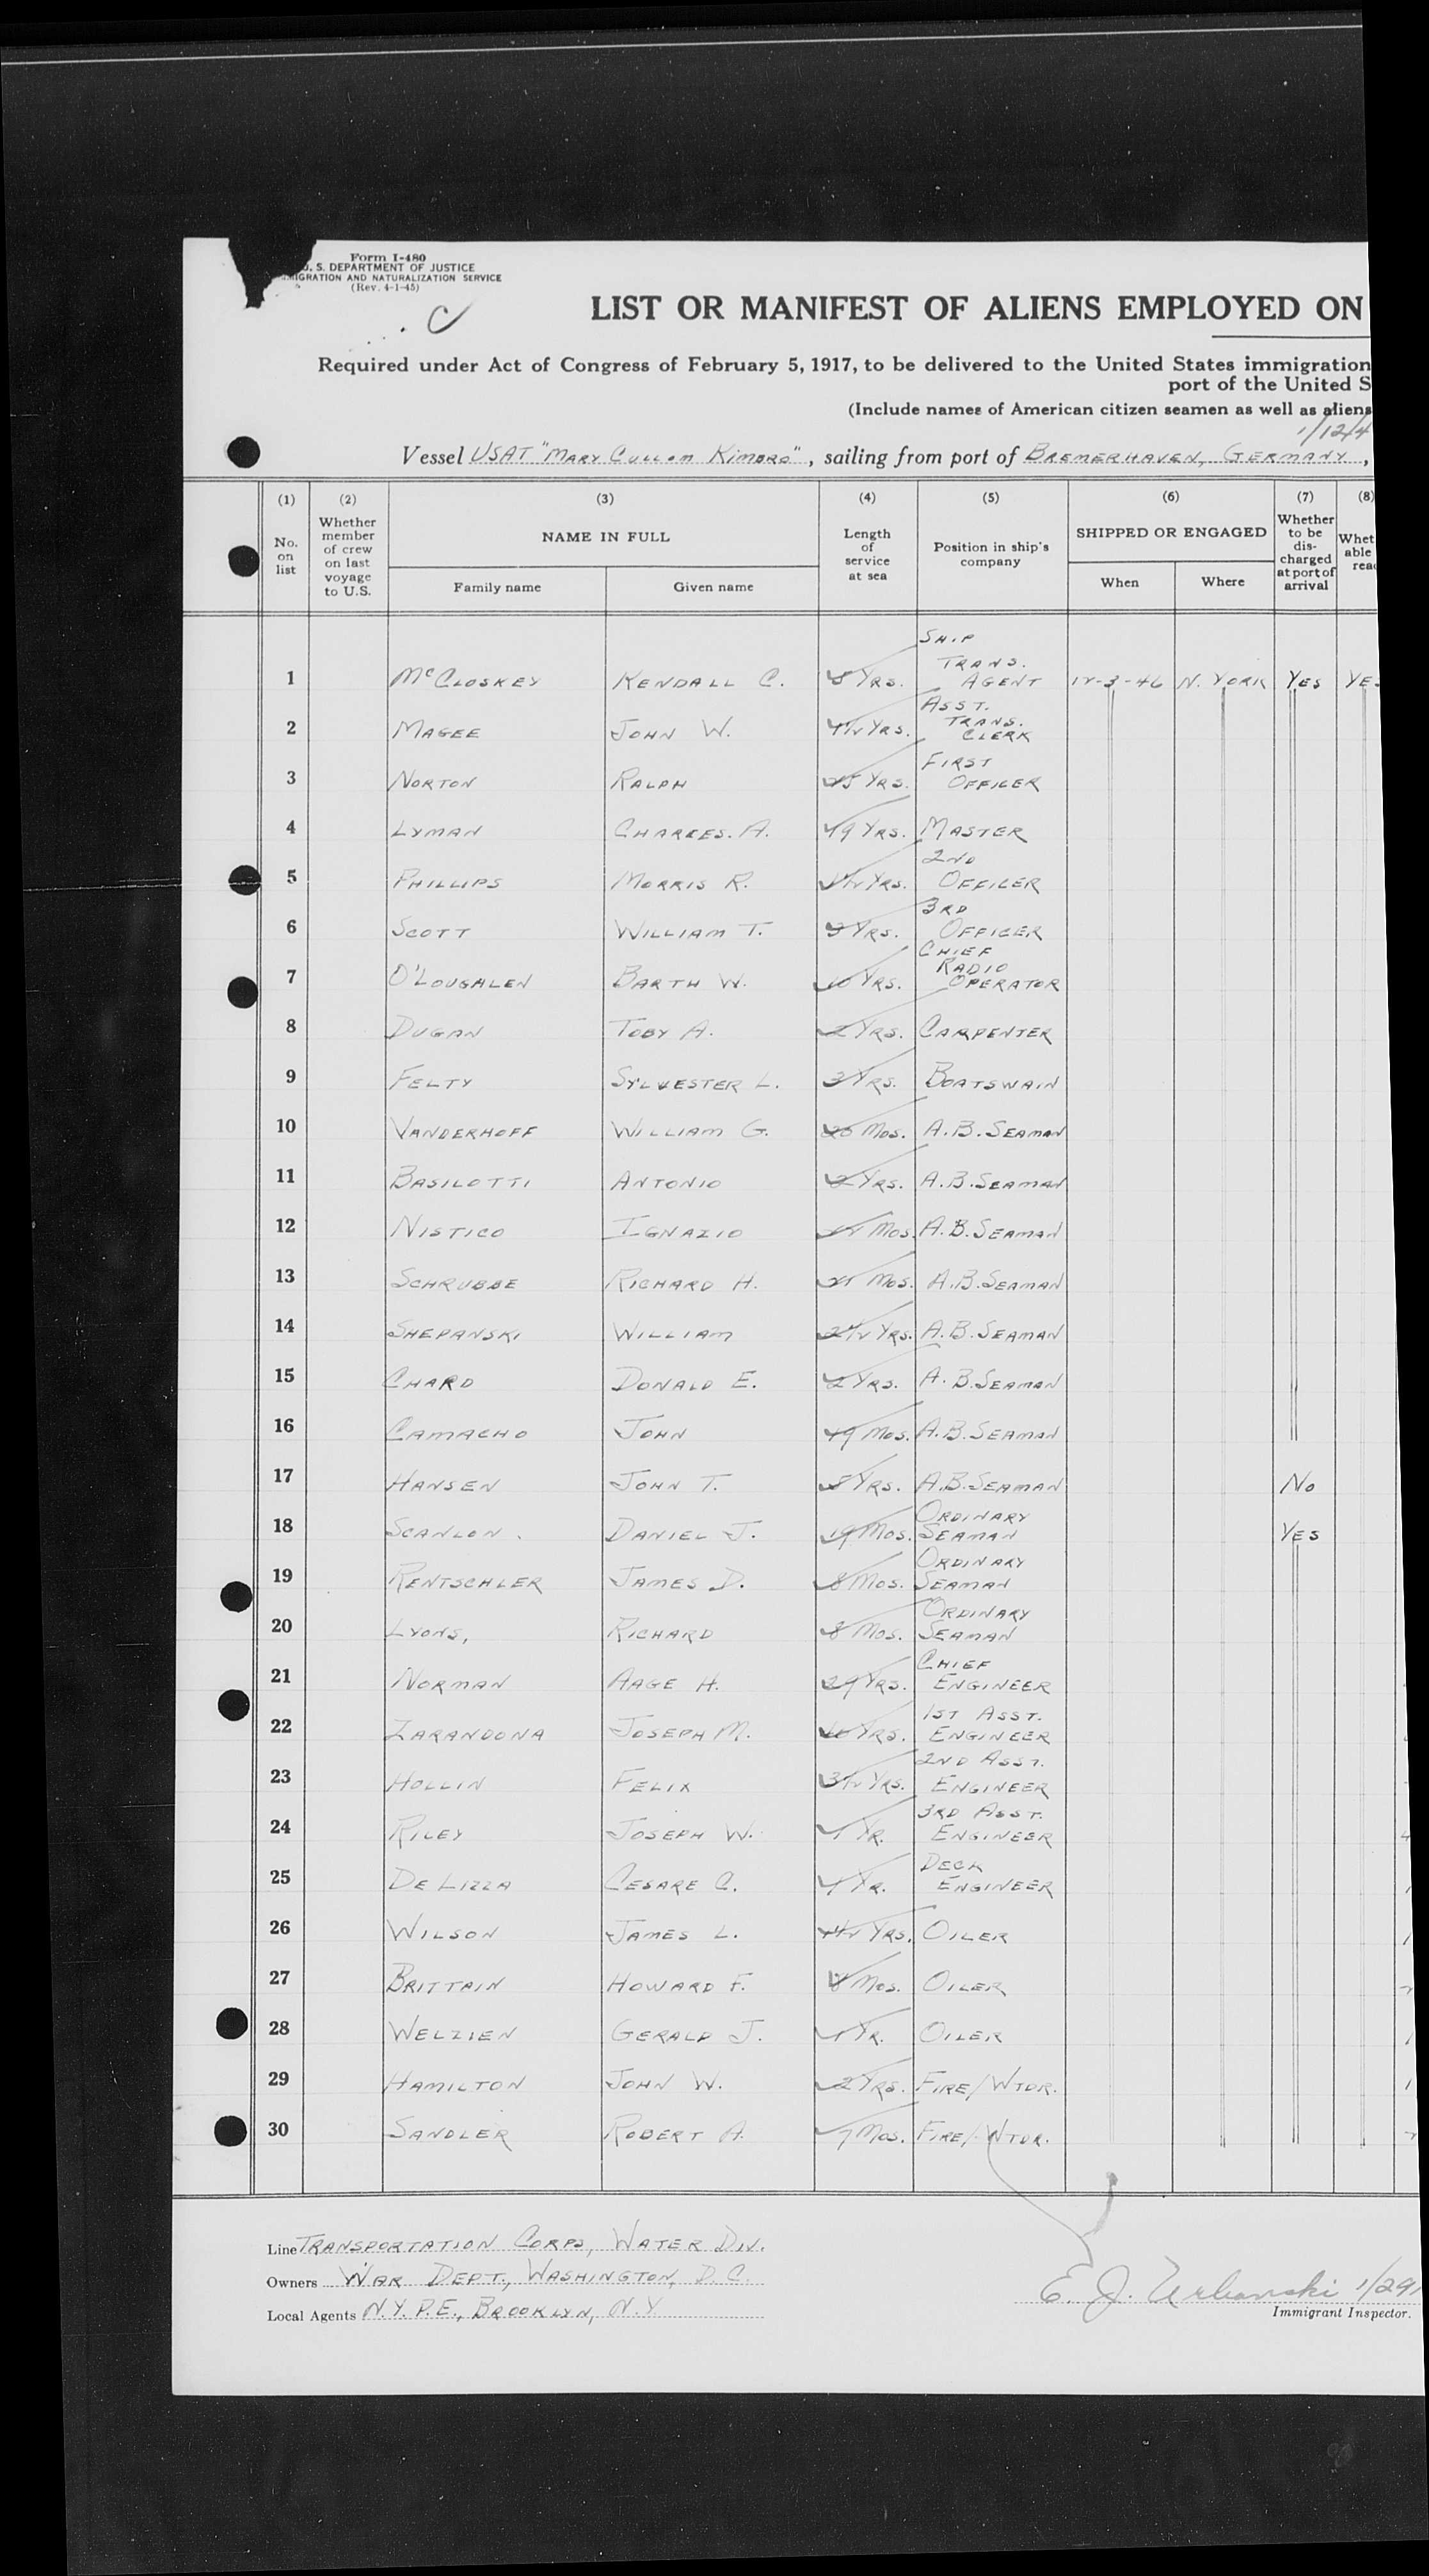 Form I-480
U. S. DEPARTMENT OF JUSTICE
IGRATION AND NATURALIZATION SERVICE
(Rev. 4-1-45)
LIST OR MANIFEST OF ALIENS EMPLOYED ON
Required under Act of Congress of February 5, 1917, to be delivered to the United States immigration
port of the United S
(Include names of American citizen seamen as well as aliens
1/12/4
Vessel USAT "MARY CULLOM KIMBRO", sailing from port of BREMERHAVEN, GERMANY,
(1) (2) (3) (4) (5) (6) (7) (8)
No. on list
Whether member of crew on last voyage to U.S.
NAME IN FULL
Family name Given name
Length of service at sea
Position in ship's company
SHIPPED OR ENGAGED
When Where
Whether to be discharged at port of arrival
Whet able rea
1 McCLOSKEY KENDALL C. YRS. SHIP TRANS. AGENT 12-3-46 N. YORK YES YES
2 MAGEE JOHN W. 4½ YRS. ASST. TRANS. CLERK
3 NORTON RALPH 25 YRS. FIRST OFFICER
4 LYMAN CHARLES. A. 49 YRS. MASTER
5 PHILLIPS MORRIS R. YRS. 2ND OFFICER
6 SCOTT WILLIAM T. 3 YRS. 3RD OFFICER
7 O'LOUGHLEN BARTH W. 10 YRS. CHIEF RADIO OPERATOR
8 DUGAN TOBY A. 2 YRS. CARPENTER
9 FELTY SYLVESTER L. 3 YRS. BOATSWAIN
10 VANDERHOFF WILLIAM G. MOS. A.B. SEAMAN
11 BASILOTTI ANTONIO 2 YRS. A.B. SEAMAN
12 NISTICO IGNAZIO MOS. A.B. SEAMAN
13 SCHRUBBE RICHARD H. MOS. A.B. SEAMAN
14 SHEPANSKI WILLIAM 2½ YRS. A.B. SEAMAN
15 CHARD DONALD E. 2 YRS. A.B. SEAMAN
16 CAMACHO JOHN 49 MOS. A.B. SEAMAN
17 HANSEN JOHN T. YRS. A.B. SEAMAN NO
18 SCANLON. DANIEL J. 19 MOS. ORDINARY SEAMAN YES
19 RENTSCHLER JAMES D. 8 MOS. ORDINARY SEAMAN
20 LYONS, RICHARD 8 MOS. ORDINARY SEAMAN
21 NORMAN AAGE H. 29 YRS. CHIEF ENGINEER
22 ZARANDONA JOSEPH M. YRS. 1ST ASST. ENGINEER
23 HOLLIN FELIX 3½ YRS. 2ND ASST. ENGINEER
24 RILEY JOSEPH W. 1 YR. 3RD ASST. ENGINEER
25 DE LIZZA CESARE C. 1 YR. DECK ENGINEER
26 WILSON JAMES L. YRS. OILER
27 BRITTAIN HOWARD F. 8 MOS. OILER
28 WELZIEN GERALD J. 1 YR. OILER
29 HAMILTON JOHN W. 2 YRS. FIRE/WTDR.
30 SANDLER ROBERT A. 7 MOS. FIRE/WTDR.
Line TRANSPORTATION CORPS, WATER DIV.
Owners WAR DEPT., WASHINGTON, D.C.
Local Agents N.Y.P.E., BROOKLYN, N.Y.
E. J. Urbanski 1/29/
Immigrant Inspector.